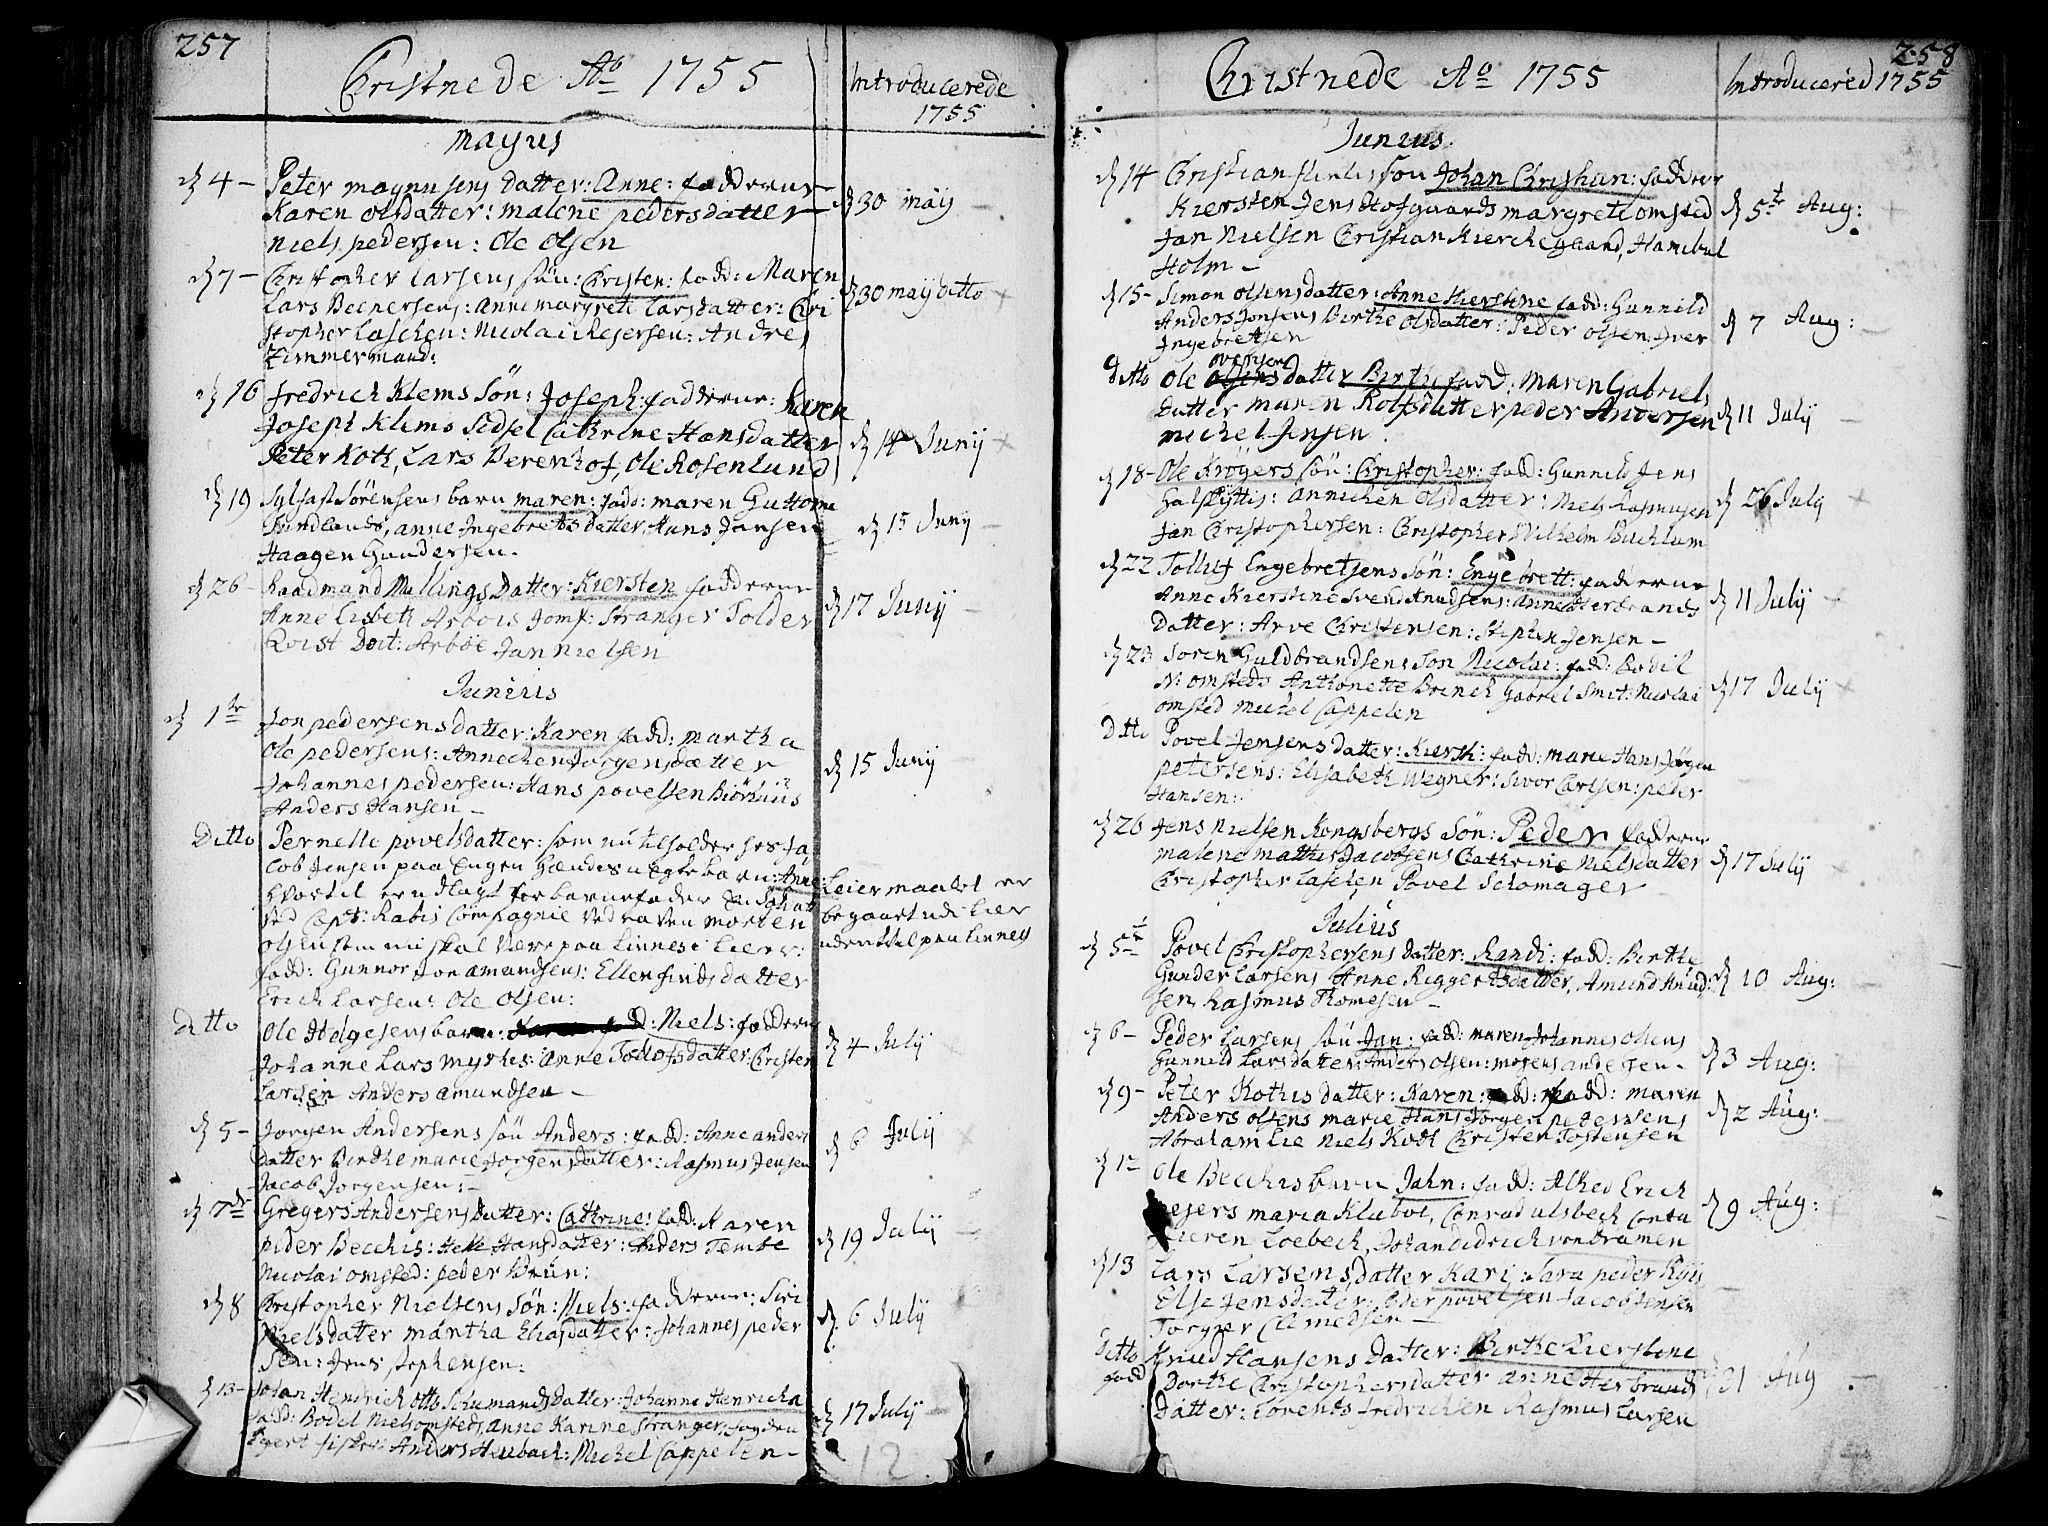 257
Christnede Ao 1755
Introducerede
1755
Mayus
d 4 - Peter magnusens datter: Anne: fadderne
Karen olsdatter: malene pedersdatter
Niels pedersen: Ole Olsen
d 30 may -
d 7 - Christopher Larsens søn: Christen: fadd: Maren
Lars : Anne margrete Larsdatter: Chri
stopher Laschen: Nicolai : Andre
Zimmermand:
d 30 may ditto
d 16 Fredrich Klems Søn: Joseph: fadderne: Karen
Joseph Klems Sidsel Cathrine Hansdatter
Peter Koth, Lars Berenhof, Ole Rosenlund
d 14 Junij
d 19 Sørensens barn maren: fadd: maren Guttorms
, anne Ingebretsdatter, Hans Jansen
Haagen Gundersen.
d 15 Junij -
d 26 - Raadmand Mullings Datter: Kiersten fadderne
Anne Lisbeth Arbois Jomf: Stranger Tolder
Qvist Doct: Arbøe Jan Nielsen
d 17 Junij -
Junius
d 1te Jon pedersens datter: Karen fadd: martha
Ole pedersens: Annechen Jorgensdatter
Johannes pedersen: Hans povelsen Biørhuus
Anders Hansen -
d 15 Junij
Ditto Pernelle povelsdatter: som nu tilholder hos Ja
cob Jensen paa Engen Hændes uægte barn: Anne:
hvortil er udlagt for barnefader En Soldat
ved Capt: Rabis Compagnie ved naven morten
olsen som nu skal være paa Linnes i Lier:
fadd: Gunnor Jon amundsens: Ellen findsdatter
Erich Larsen: Ole Olsen:
Leiermaalet er
begaaet udi Lier
paa Linnes
ditto Ole Helgesens barn: Niels: fadderne
Johanne Lars Myrhis: anne Tollofsdatter: Christen
Larsen Anders amundsen -
d 4 July
d 5 - Jorgen Andersens søn Anders: fadd: Anne anders
datter Birthe marie Jorgensdatter: Rasmus Jensen
Jacob Jorgensen: -
d 6 Julij
d 7de Gregers Andersens datter: Cathrine: fadd: Karen
peder Becchis: Helle Hansdatter: Anders Tembe
Nicolai omsted: peder Bruun:
d 19 Julij
d 8 Christopher Nielsens Søn: Niels: fadderne: Siri
Nielsdatter martha Eliasdatter: Johannes peder
Sen: Jens Stephensen:
d 6 Julij
d 13 - Johan Hendrich otto Schumands datter: Johanne Henricha
fadd: Bodel Niels omsteds, Anne Karine Stranger,
: Anders Heubach: Michel Cappelen -
d 17 Julij
12
258
Christnede Ao 1755
Introducered 1755
Junius.
d 14 Christian søn Johan Christian: fadderne
Kiersten Jens Hofgaards margrete omsted
Jan Nielsen Christian Kierchegaard, Hanibal
Holm -
d 5te Aug:
d 15 - Simon olsens datter: Anne Kierstine fadd: Gunnild
Anders Jonsens Birthe olsdatter: Peder olsen Iver
Ingebretsen
d 7 Aug:
ditto Ole datter Birthe fadd: Maren Gabriels
datter maren Rolfsdatter peder Andersen
michel Jensen.
d 11 July
d 18 - Ole Krøgers søn: Christopher: fadd: Gunnild Jens
: Annichen Olsdatter: Niels Rasmusen
Jan Christophersen: Christopher Wilhelm Buchlum
d 26 July
d 22 Tollef Engebretsens Søn: Engebrett: fadderne
Anne Kierstine Svend Knudsens: anne Herbrands
datter: Arve Christensen: Stephen Jensen -
d 11 Julij
d 23 Soren Guldbrandsens Søn Nicolai: fadd: Bodil
N: omsteds Anthonette Brinch Gabriel Smit: Nicolai
omsted Michel Cappelen
d 17 July
Ditto Povel Jensens datter: Kirsti: fadd: marie Hans Jørgen
petersens: Elisabeth Wegner: Sivor Carlsen: peder
Hansen:
d 26 Jens Nielsen Kongsbergs Søn: Peder fadderne
malene mathis Jacobsens Cathrine Nielsdatter
Christopher Laschen Povel Schomager
d 17 Julij
Julius
d 5te Povel Christophersens datter: Randi: fadd: Birthe
Gunder Larsens Anne Reggertsdatter, Amund Knud
sen, Rasmus Thomesen -
d 10 Aug:
d 6 - Peder Larsens søn Jan: fadd: maren Johannes olsens
Gunnild Larsdatter: Anders olsen: mogens andersen -
d 3 Aug:
d 9 - Peter Kothis datter: Karen: fadd: maren
Anders olsens marie Hans Jorgen petersens
Abraham Lie Niels Koth Christen Tostensen
d 2 Aug:
d 12 Ole Becchis barn Jahn: fadd: Alhed Erich
Meyers maria Klubøe, Conrad ulsbeck
Loebeck, Johan didrich von dramen
d 9 Aug:
d 13 Lars Larsens datter Kari: Sara peder
Else Jensdatter: peder povelsen Jacob Jensen
Torger Clemedsen -
Ditto Knud Hansens datter: Birthe Kierstine
fadd Dorthe Christophersdatter anne Herbrands
datter: Lorends fredrichsen Rasmus Larsen
d 31 Aug